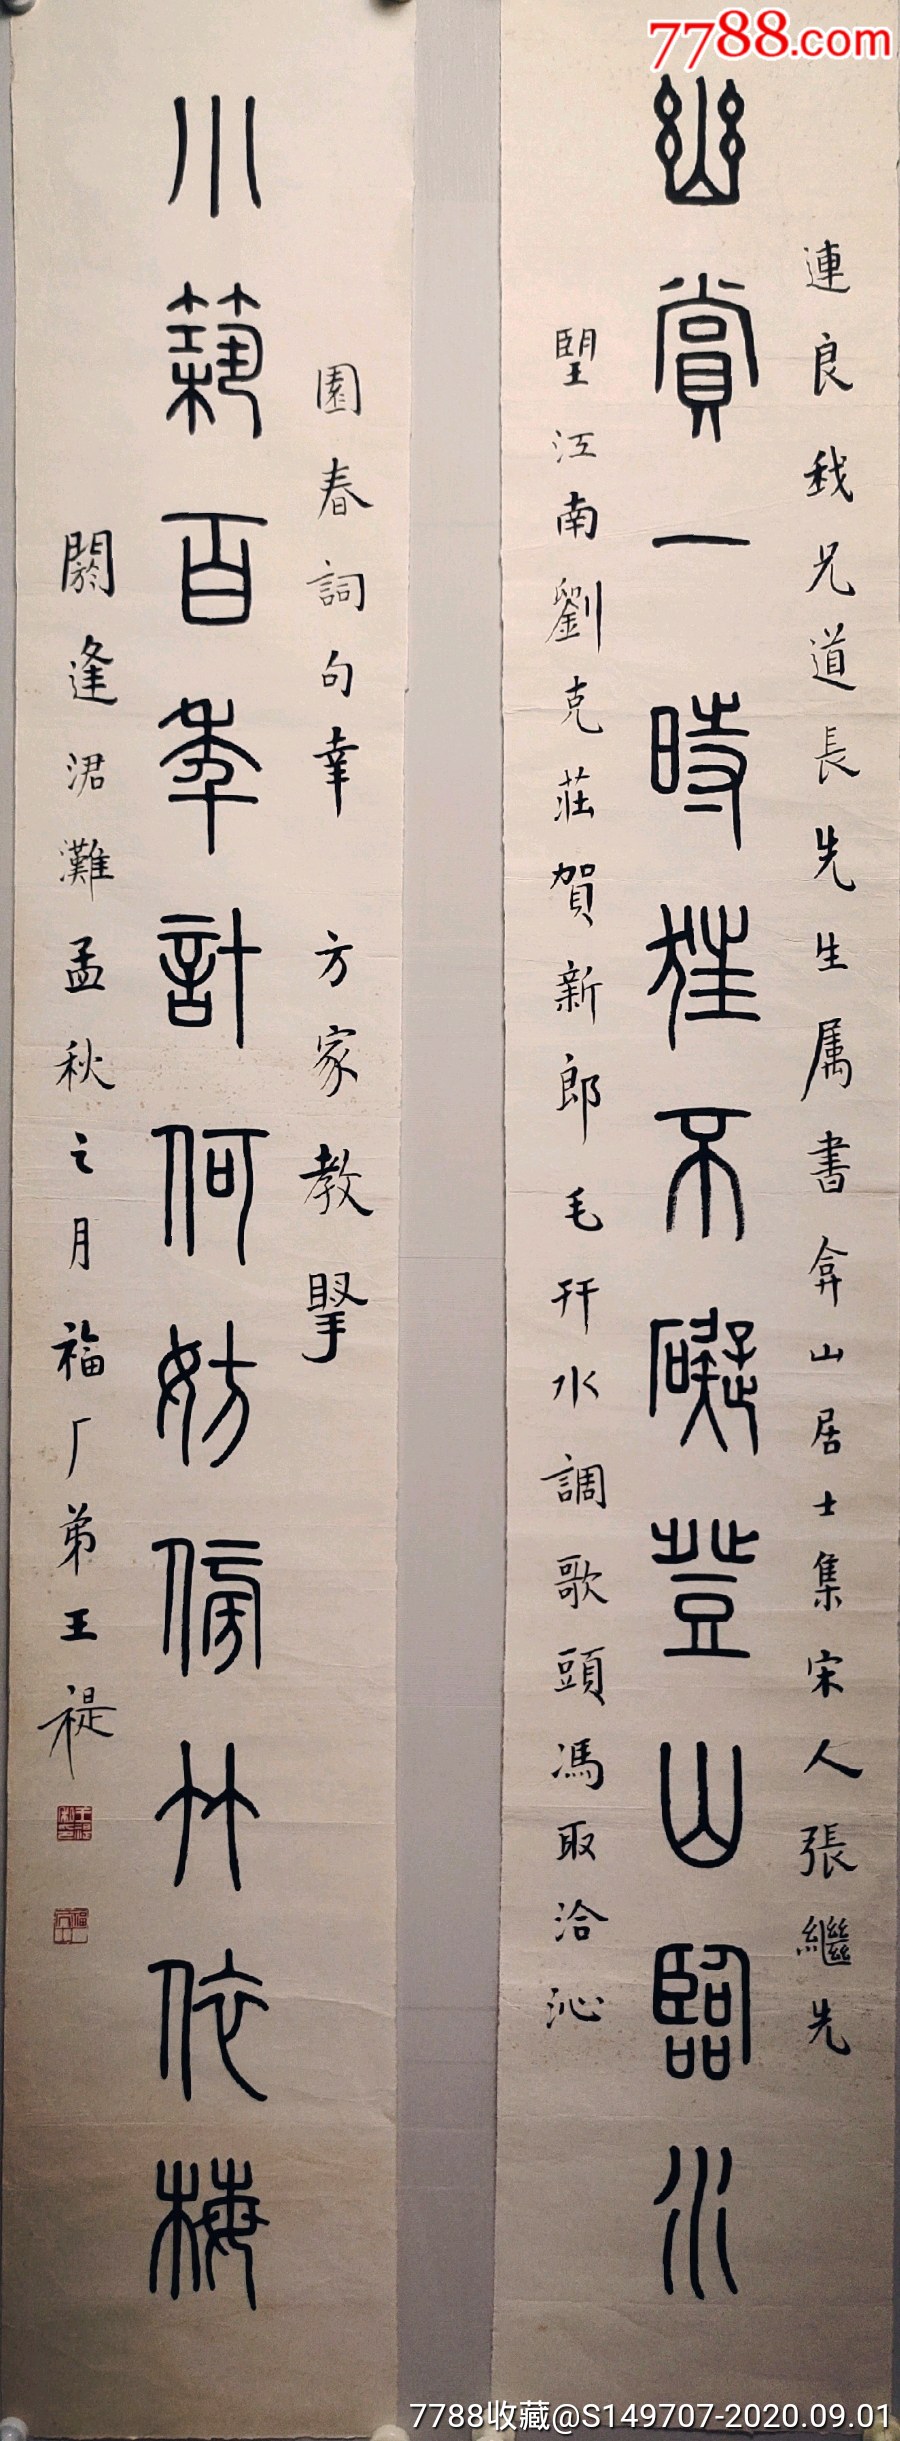 7788.com
連良我兄道長先生属書弇山居士集宋人張繼先
幽賞一時狂不礙登山臨水
朢江南劉克莊賀新郎毛幵水調歌頭馮取洽沁
園春詞句幸 方家教掔
小蓺百年計何妨傍竹依梅
閼逢涒灘孟秋之月福厂弟王禔
7788收藏@S149707-2020.09.01